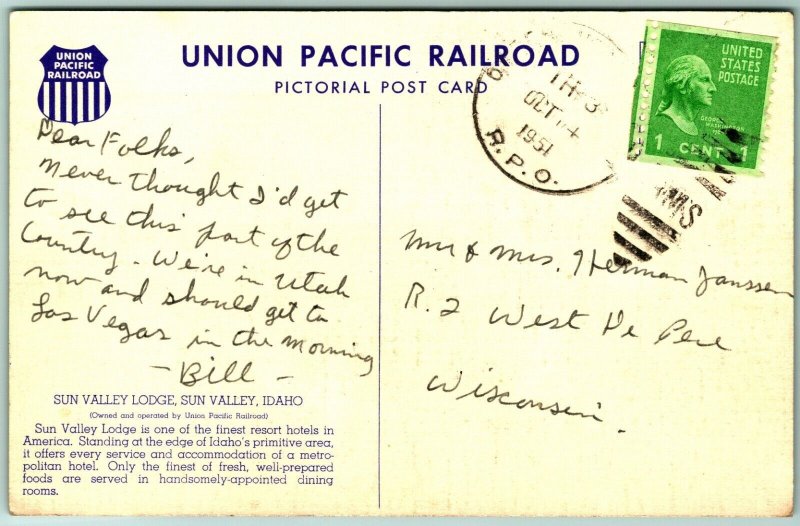 UNION
PACIFIC
RAILROAD
UNION PACIFIC RAILROAD
PICTORIAL POST CARD
TR 3
OCT 4
1951
R.P.O.
UNITED
STATES
POSTAGE
GEORGE
WASHINGTON
1 CENT 1
Dear Folks,
Never thought I'd get
to see this part of the
Country. We're in Utah
now and should get to
Las Vegas in the morning
- Bill -
Mr & Mrs. Herman Janssen
R. 2 West De Pere
Wisconsin.
SUN VALLEY LODGE, SUN VALLEY, IDAHO
(Owned and operated by Union Pacific Railroad)
Sun Valley Lodge is one of the finest resort hotels in
America. Standing at the edge of Idaho's primitive area,
it offers every service and accommodation of a metro-
politan hotel. Only the finest of fresh, well-prepared
foods are served in handsomely-appointed dining
rooms.